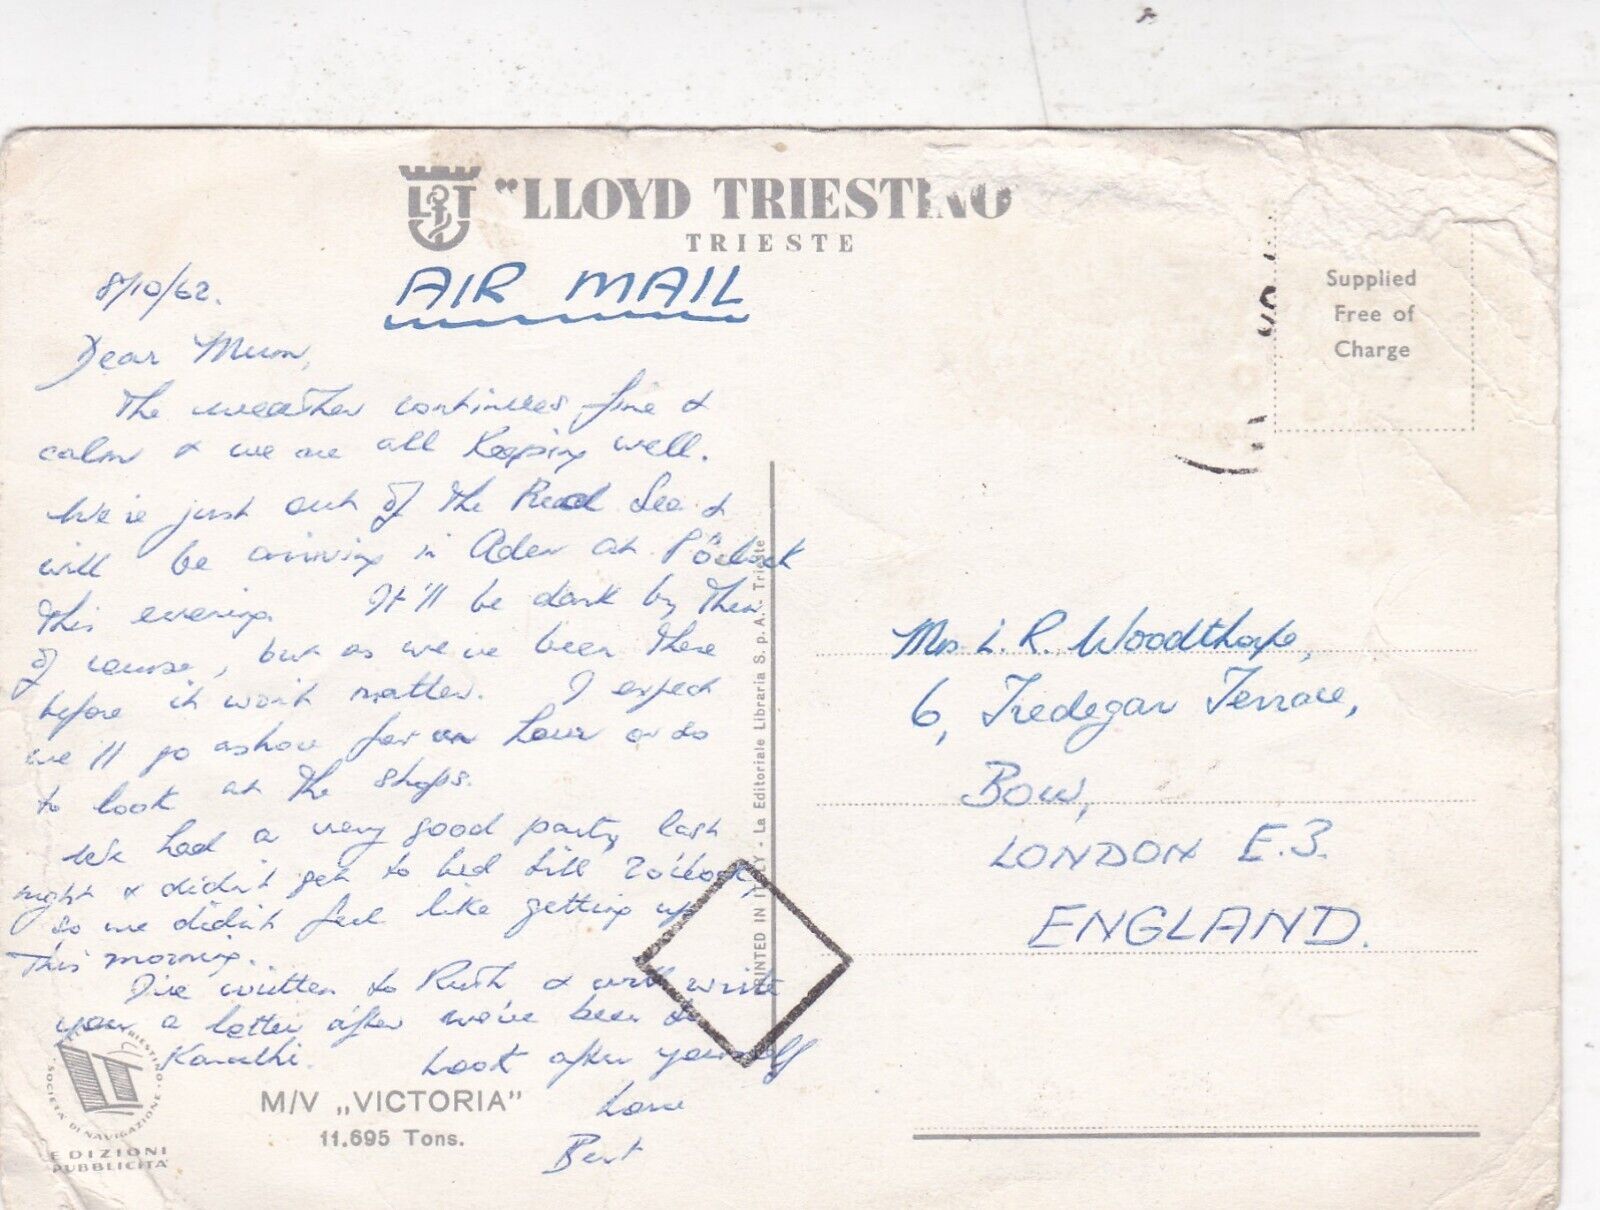 LT
"LLOYD TRIESTINO
TRIESTE
AIR MAIL
Supplied
Free of
Charge
8/10/62.
Dear Mum,
The weather continues fine &
calm & we are all keeping well.
We're just out of the Red Sea &
will be arriving in Aden at 8 o'clock
this evening. It'll be dark by then
of course, but as we've been there
before it won't matter. I expect
we'll go ashore for an hour or so
to look at the shops.
We had a very good party last
night & didn't get to bed till 2 o'clock,
so we didn't feel like getting up
this morning.
I've written to Ruth & will write
you a letter after we've been to
Karachi. Look after yourself
Love
Bert
Mrs L. R. Woodthorpe,
6, Tredegar Terrace,
Bow,
LONDON E.3.
ENGLAND.
PRINTED IN ITALY - La Editoriale Libraria S. p. A. - Trieste
SOCIETÀ DI NAVIGAZIONE
EDIZIONI
PUBBLICITÀ
M/V „VICTORIA"
11.695 Tons.